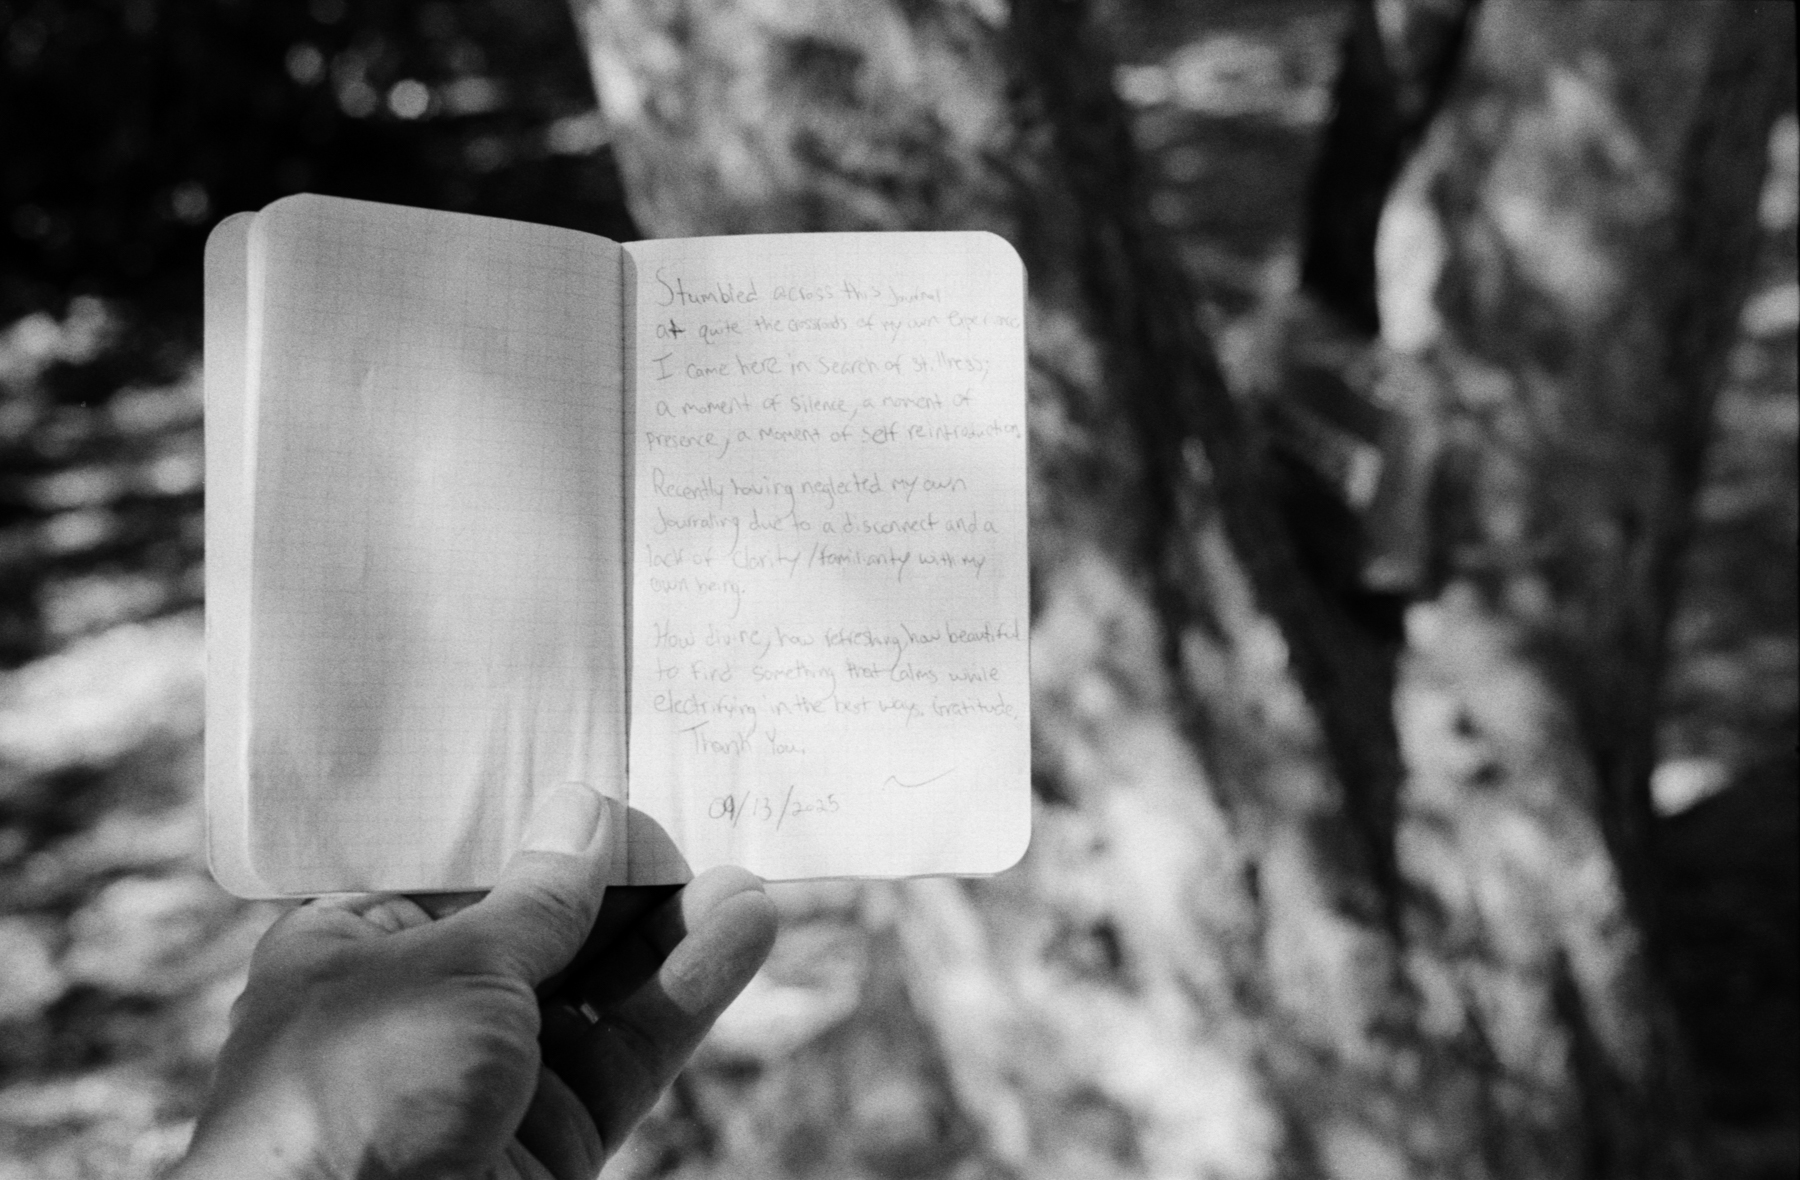 Stumbled across this Journal
at quite the crossroads of my own experience
I came here in search of stillness;
a moment of silence, a moment of
presence, a moment of self reintroduction.
Recently having neglected my own
Journaling due to a disconnect and a
lack of clarity/familiarity with my
own being.
How divine, how refreshing, how beautiful
to find something that calms while
electrifying in the best ways. Gratitude.
Thank You.
09/13/2025